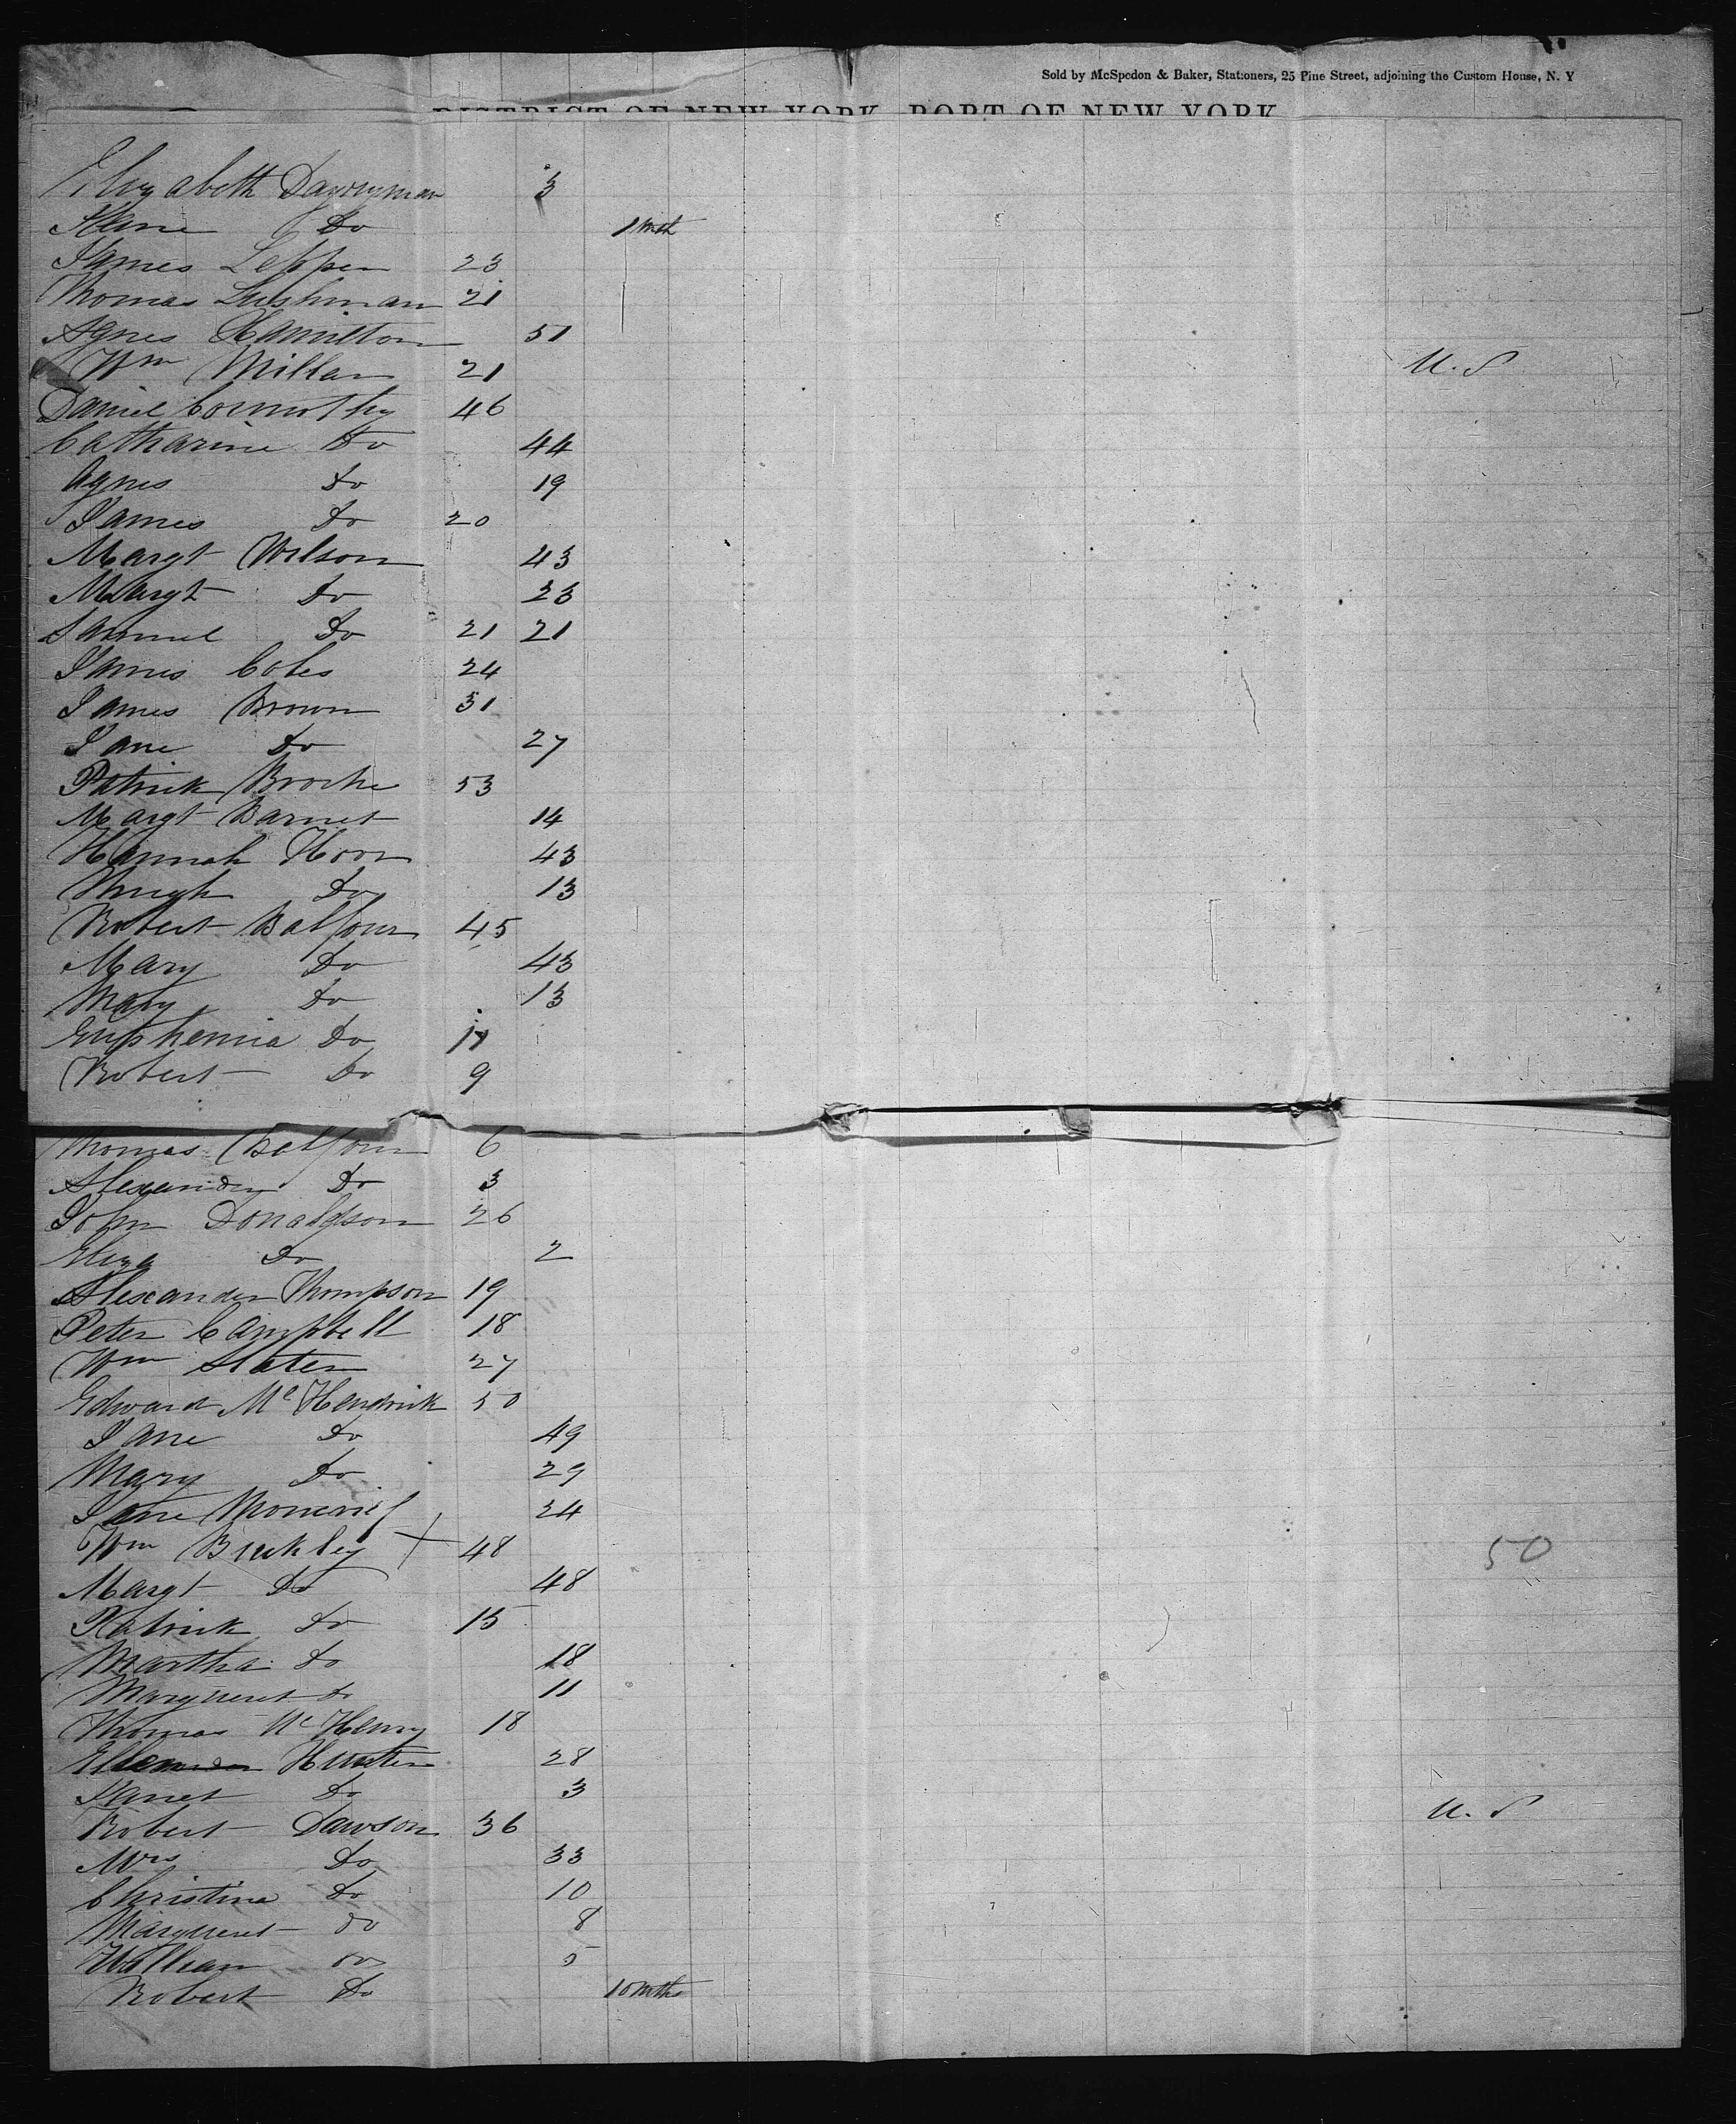 Sold by McSpedon & Baker, Stationers, 25 Pine Street, adjoining the Custom House, N. Y
DISTRICT OF NEW YORK, PORT OF NEW YORK
Elizabeth Dayryman 3
Jane Do 1 Mth
James Leppen 23
Thomas Lushman 21
Agnes Hamilton 51
Wm Millar 21 U.S
Daniel 46
Catharine Do 44
Agnes Do 19
James Do 20
Margt Wilson 43
Margt Do 23
Samuel Do 21 21
James Coles 24
James Brown 31
Jane Do 27
Patrick 53
Margt Barnet 14
Hannah 43
Hugh Do 13
Robert Balfour 45
Mary Do 43
Mary Do 13
Euphemia Do 11
Robert Do 9
Thomas Balfour 6
Alexander Do 3
John Donaldson 26
Eliza Do 2
Alexander Thompson 19
Peter Campbell 18
Wm Slater 27
Edward McHendrick 50
Jane Do 49
Mary Do 29
Jane Moncrief 24
Wm Bickley + 48 50
Margt Do 48
Patrick Do 15
Martha Do 18
Margueret Do 11
Thomas McHenry 18
Ellen Hunter 28
Janet Do 3
Robert Dawson 36 U.S
Mrs Do 33
Christina Do 10
Margueret do 8
William do 5
Robert Do 10 Mths